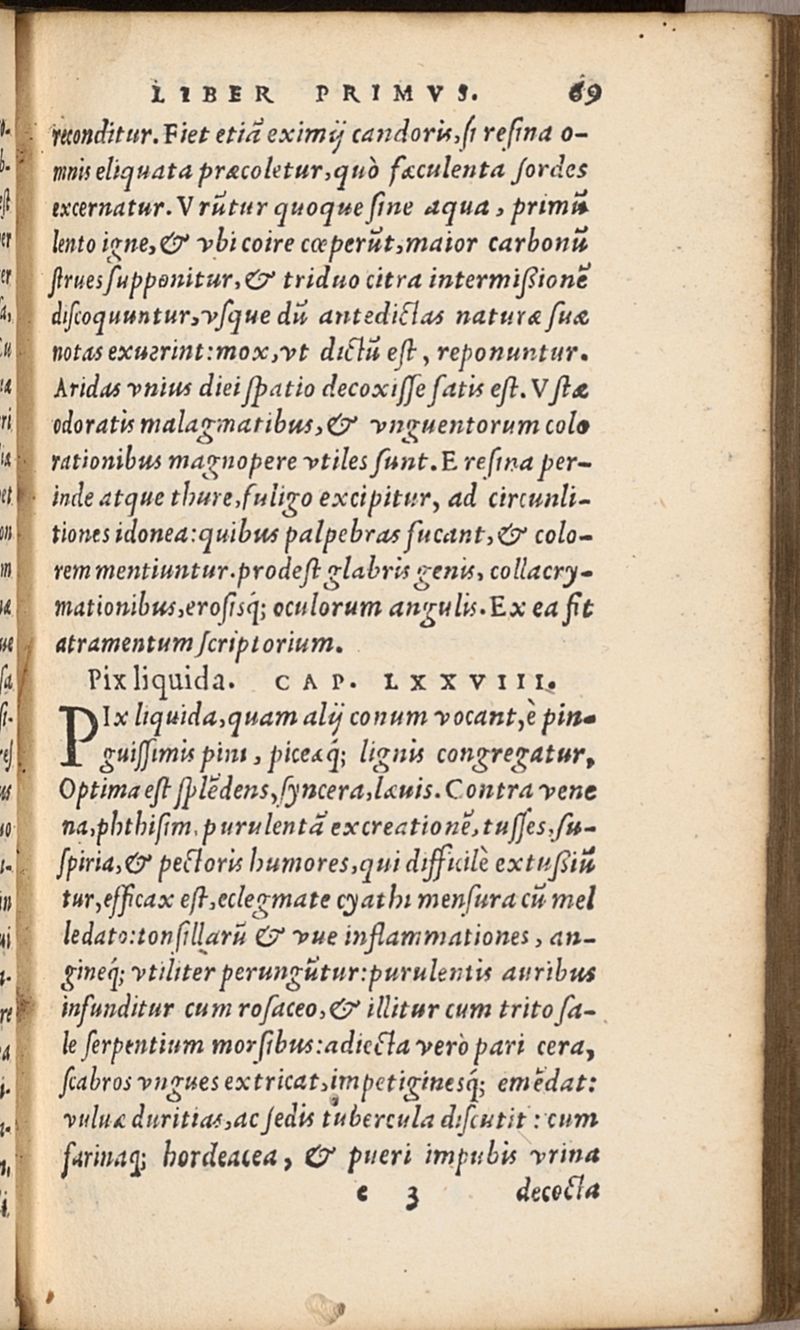 LIBER PRIMVS. 69
reconditur. Fiet etiã eximij candoris, si resina o-
mnis eliquata præcoletur, quò fæculenta sordes
excernatur. Vrũtur quoque sine aqua, primũ
lento igne, & vbi coire cœperũt, maior carbonũ
strues supponitur, & triduo citra intermißionẽ
discoquuntur, vsque dũ antedictas naturæ suæ
notas exuerint: mox, vt dictũ est, reponuntur.
Aridas vnius diei spatio decoxisse satis est. Vstæ
odoratis malagmatibus, & vnguentorum colo
rationibus magnopere vtiles sunt. E resina per-
inde atque thure, fuligo excipitur, ad circunli-
tiones idonea: quibus palpebras fucant, & colo-
rem mentiuntur. prodest glabris genis, collacry-
mationibus, erosisq́; oculorum angulis. Ex ea fit
atramentum scriptorium.
Pix liquida. CAP. LXXVIII.
PIx liquida, quam alij conum vocant, è pin-
guissimis pini, piceæq́; lignis congregatur,
Optima est splẽdens, syncera, læuis. Contra vene
na, phthisim, purulentã excreationẽ, tusses, su-
spiria, & pectoris humores, qui difficilè extußiũ
tur, efficax est, eclegmate cyathi mensura cũ mel
le dato: tonsillarũ & vue inflammationes, an-
gineq́; vtiliter perungũtur: purulentis auribus
infunditur cum rosaceo, & illitur cum trito sa-
le serpentium morsibus: adiecta verò pari cera,
scabros vngues extricat, impetiginesq́; emẽdat:
vuluæ duritias, ac sedis tubercula discutit: cum
farinaq; hordeacea, & pueri impubis vrina
e 3 decocta